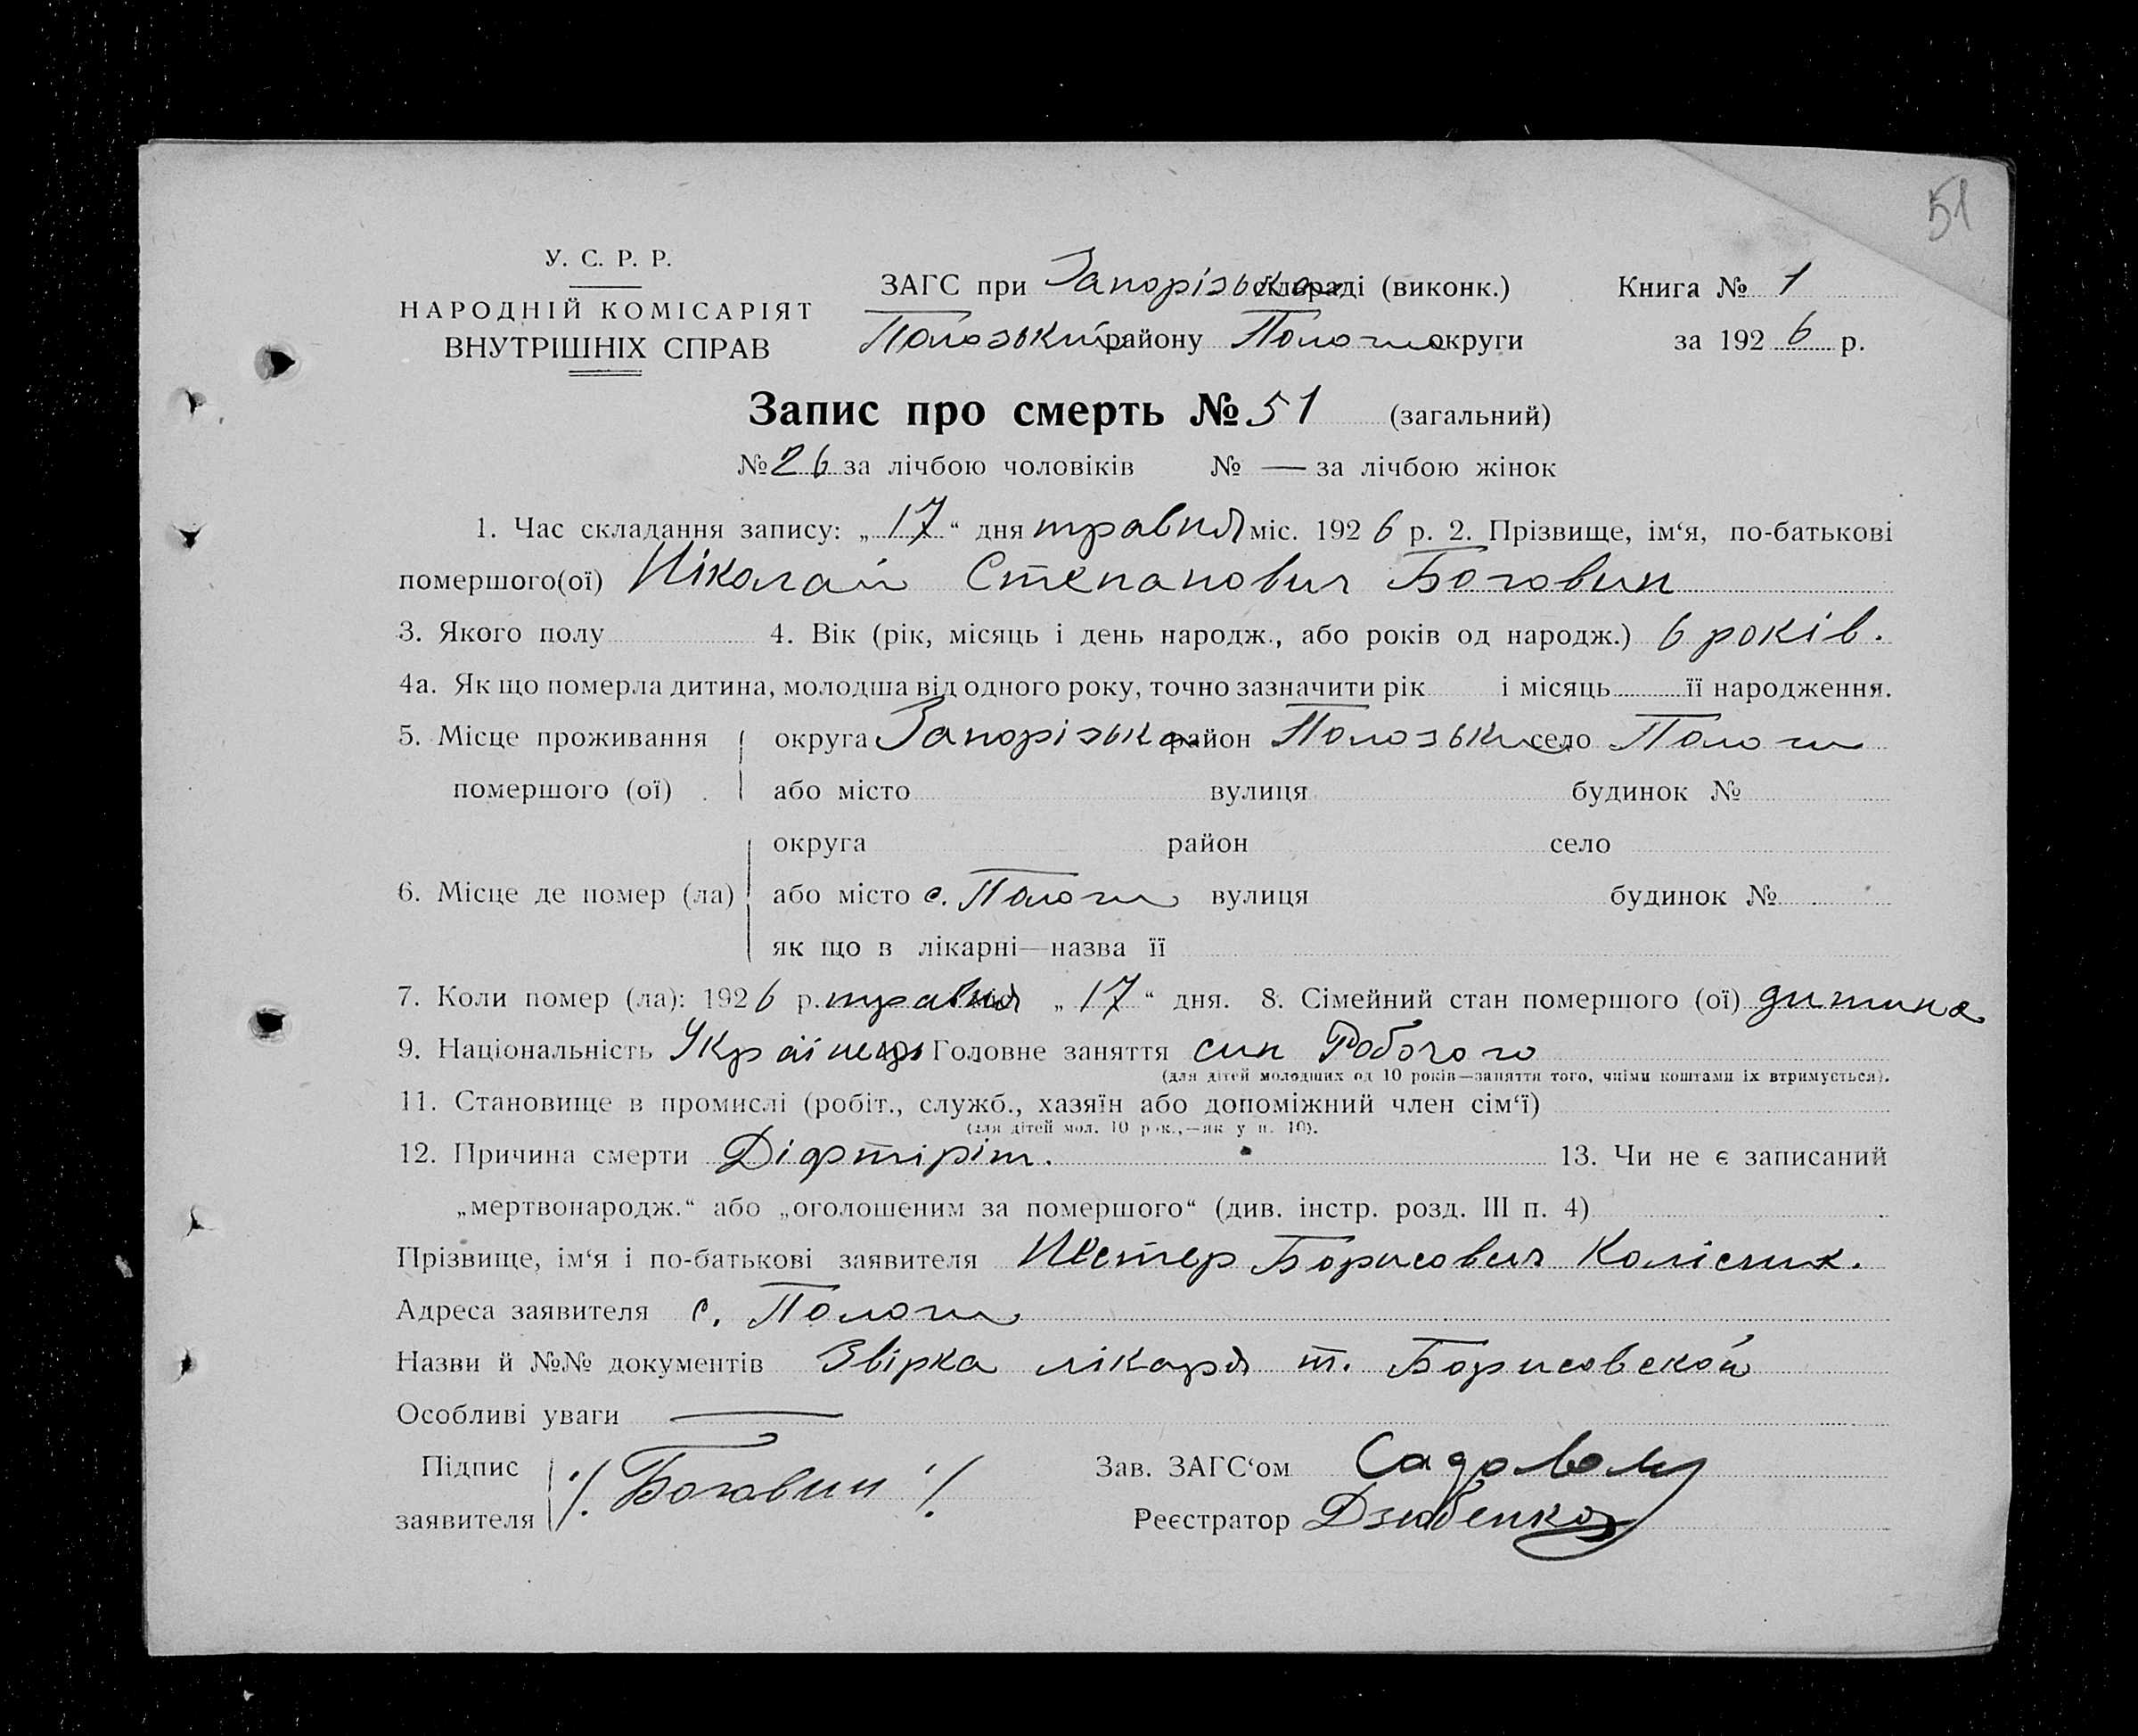 51
У. С. Р. Р.
НАРОДНІЙ КОМІСАРІЯТ
ВНУТРІШНІХ СПРАВ
ЗАГС при Запорізька сільраді (виконк.)
Полозький району Пологи округи
Книга № 1
за 192 6 р.
Запис про смерть № 51 (загальний)
№ 26 за лічбою чоловіків № — за лічбою жінок
1. Час складання запису: „ 17 “ дня травня міс. 192 6 р. 2. Прізвище, ім‘я, по-батькові
помершого(ої) Ніколай Степанович Боговин
3. Якого полу 4. Вік (рік, місяць і день народж., або років од народж.) 6 років.
4а. Як що померла дитина, молодша від одного року, точно зазначити рік і місяць її народження.
5. Місце проживання округа Запорізька район Полозьки село Пологи
помершого (ої) або місто вулиця будинок №
округа район село
6. Місце де помер (ла) або місто с. Пологи вулиця будинок №
як що в лікарні—назва її
7. Коли помер (ла): 192 6 р. травня „ 17 “ дня. 8. Сімейний стан помершого (ої) дитина
9. Національність Українець Головне заняття син Робочого
(для дітей молодших од 10 років—заняття того, чиїми коштами їх втримується).
11. Становище в промислі (робіт., служб., хазяїн або допоміжний член сім‘ї)
(для дітей мол. 10 рок.,—як у п. 10).
12. Причина смерти Діфтіріт. 13. Чи не є записаний
„мертвонародж.“ або „оголошеним за помершого“ (див. інстр. розд. III п. 4)
Прізвище, ім‘я і по-батькові заявителя Нестер Борисович Колісник.
Адреса заявителя с. Пологи
Назви й №№ документів Звірка лікаря т. Борисовской
Особливі уваги —
Підпис
заявителя /. Боговин ./
Зав. ЗАГС‘ом Садовой
Реєстратор Дзюбенко